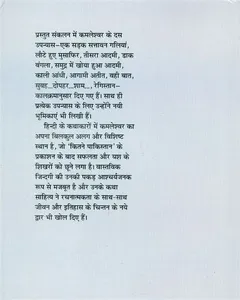 प्रस्तुत संकलन में कमलेश्वर के दस
उपन्यास–एक सड़क सत्तावन गलियां,
लौटे हुए मुसाफिर, तीसरा आदमी, डाक
बंगला, समुद्र में खोया हुआ आदमी,
काली आंधी, आगामी अतीत, वही बात,
सुबह...दोपहर...शाम..., रेगिस्तान–
कालक्रमानुसार दिए गए हैं। साथ ही
प्रत्येक उपन्यास के लिए उन्होंने नयी
भूमिकाएं भी लिखी हैं।
हिन्दी के कथाकारों में कमलेश्वर का
अपना बिलकुल अलग और विशिष्ट
स्थान है, जो 'कितने पाकिस्तान' के
प्रकाशन के बाद सफलता और यश के
शिखरों को छूने लगा है। वास्तविक
जिन्दगी की उनकी पकड़ आश्चर्यजनक
रूप से मजबूत है और उनके कथा
साहित्य ने रचनात्मकता के साथ-साथ
जीवन और इतिहास के चिन्तन के नये
द्वार भी खोल दिए हैं।